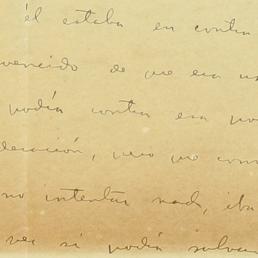 él estaba en contra
vencido de que era
podía contra esa
deración, pero no
no intentar nada, iba
ver si podía salvar